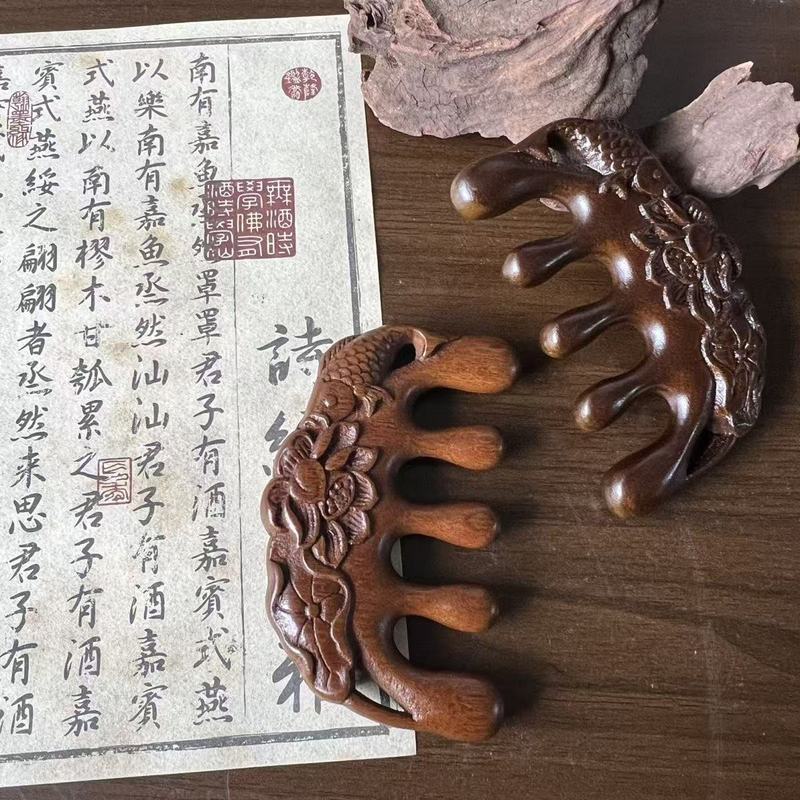 詩
無酒時
學佛有
酒時學仙
南有嘉魚烝然罩罩君子有酒嘉賓式燕
以樂南有嘉魚烝然汕汕君子有酒嘉賓
式燕以南有樛木甘瓠累之君子有酒嘉
賓式燕綏之翩翩者烝然来思君子有酒